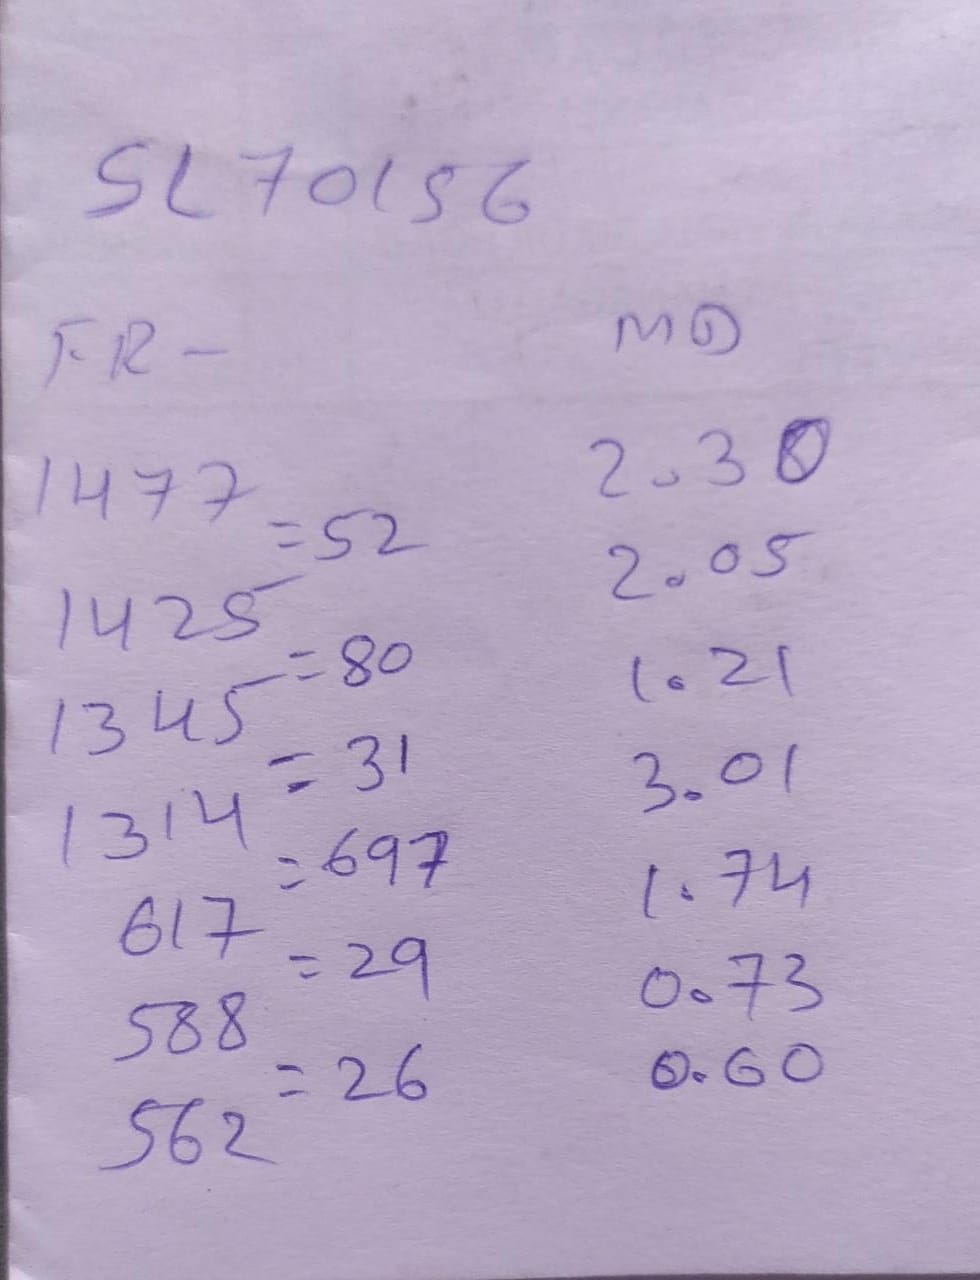 SL70156
FR- MD
1477 2.30
=52
1425 2.05
=80 1.21
1345
=31 3.01
1314
=697 1.74
617
=29 0.73
588
=26 0.60
562